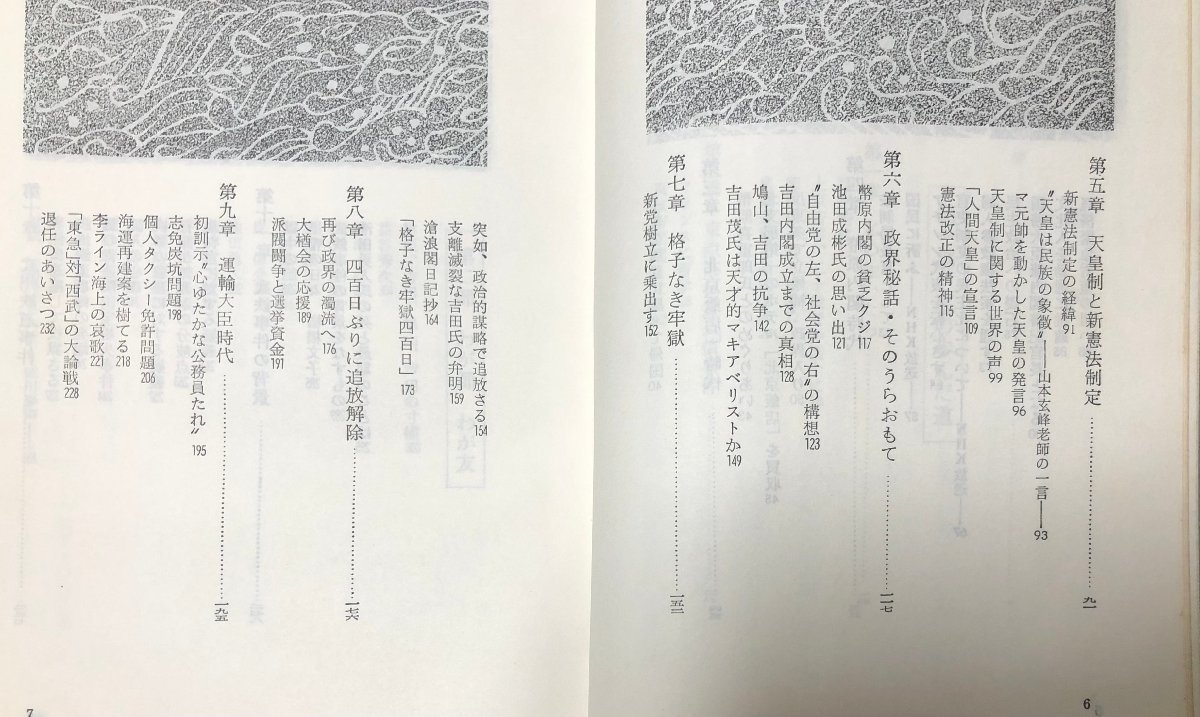 第五章　天皇制と新憲法制定……九一
新憲法制定の経緯 91
〝天皇は民族の象徴〟――山本玄峰老師の一言―― 93
マ元帥を動かした天皇の発言 96
天皇制に関する世界の声 99
「人間天皇」の宣言 109
憲法改正の精神 115
第六章　政界秘話・そのうらおもて……一一七
幣原内閣の貧乏クジ 117
池田成彬氏の思い出 121
〝自由党の左、社会党の右〟の構想 123
吉田内閣成立までの真相 128
鳩山、吉田の抗争 142
吉田茂氏は天才的マキアベリストか 149
第七章　格子なき牢獄……一五二
新党樹立に乗出す 152
6
突如、政治的謀略で追放さる 154
支離滅裂な吉田氏の弁明 159
滄浪閣日記抄 164
「格子なき牢獄四百日」 173
第八章　四百日ぶりに追放解除……一七六
再び政界の濁流へ 176
大樋会の応援 189
派閥闘争と選挙資金 191
第九章　運輸大臣時代……一九五
初訓示〝心ゆたかな公務員たれ〟 195
志免炭坑問題 198
個人タクシー免許問題 206
海運再建案を樹てる 218
李ライン海上の哀歌 221
「東急」対「西武」の大論戦 228
退任のあいさつ 232
7